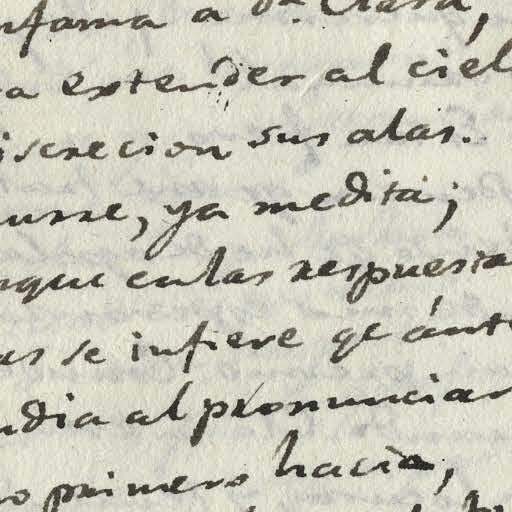 nfama a Dª Clara,
a extender al ciel
iscrecion sus alas.
urre, ya medita;
nque en las respuesta
as se infiere qe ánte
ndia al pronunciar
o primero hacia,